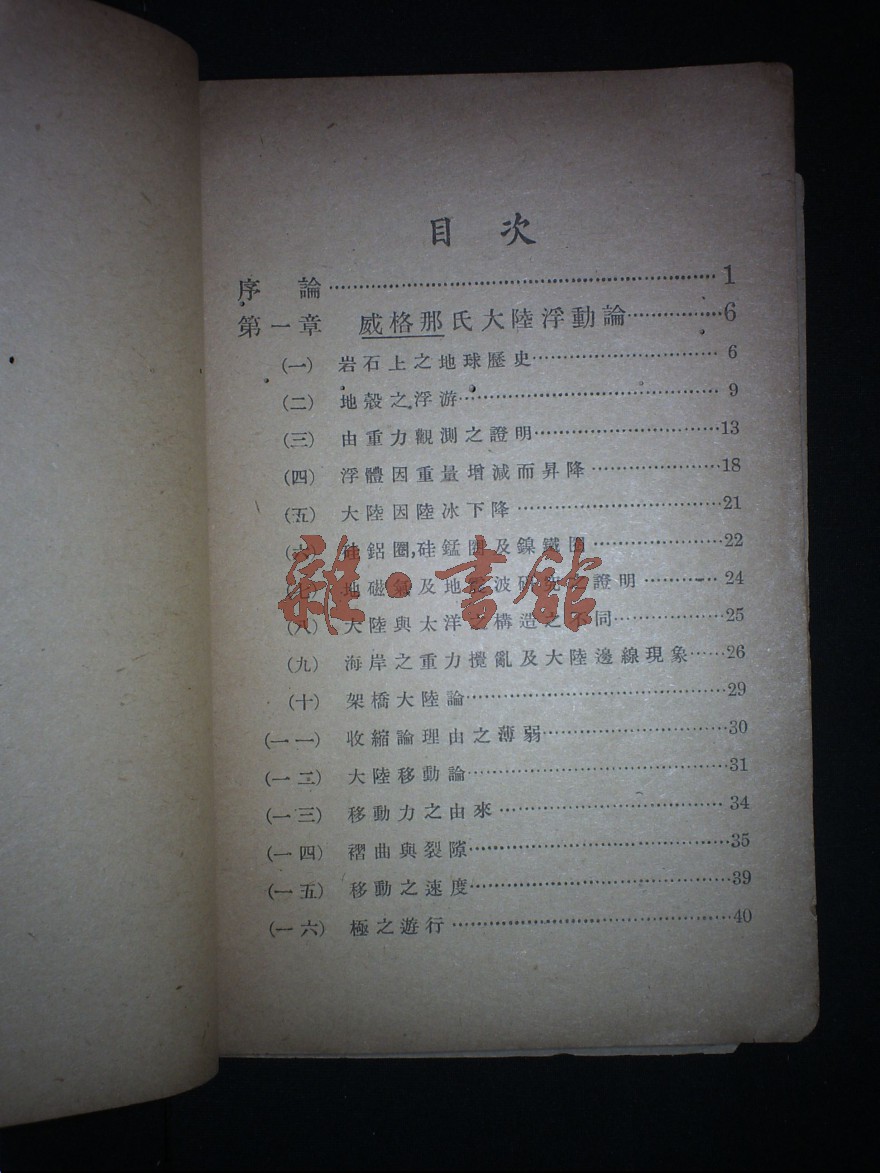 目次
序論 1
第一章 威格那氏大陸浮動論 6
(一) 岩石上之地球歷史 6
(二) 地殼之浮游 9
(三) 由重力觀測之證明 13
(四) 浮體因重量增減而昇降 18
(五) 大陸因陸冰下降 21
(六) 硅鋁圈,硅錳圈及鎳鐵圈 22
(七) 地磁氣及地震波 之證明 24
(八) 大陸與太洋 構造之不同 25
(九) 海岸之重力攪亂及大陸邊線現象 26
(十) 架橋大陸論 29
(一一) 收縮論理由之薄弱 30
(一二) 大陸移動論 31
(一三) 移動力之由來 34
(一四) 褶曲與裂隙 35
(一五) 移動之速度 39
(一六) 極之遊行 40
雜·書館